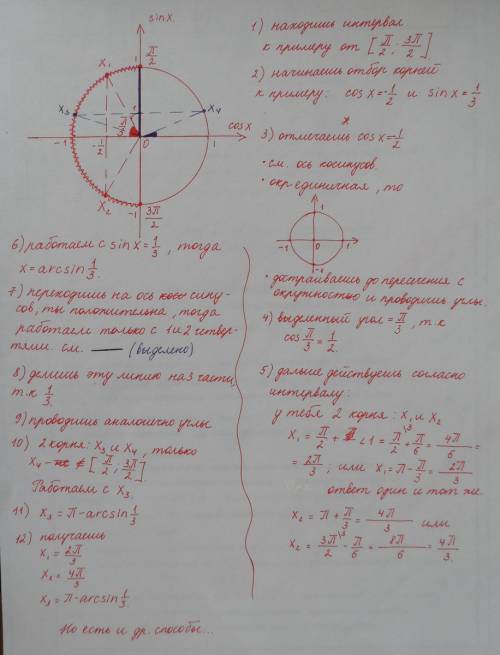 sin x.
π/2
1
x₁
x₃
x₄
1/3
π/3
cos x
-1
-1/2
0
1
x₂
-1
3π/2
1) находишь интервал
к примеру от [π/2; 3π/2]
2) начинаешь отбор корней
к примеру: cos x = -1/2 и sin x = 1/3
3) отмечаешь cos x = -1/2
• см. ось косинусов.
• окр единичная, то
1
-1
0
1
-1
• достраиваешь до пересечения с
окружностью и проводишь углы.
4) выделенный угол = π/3, т.к
cos π/3 = 1/2.
5) дальше действуешь согласно
интервалу:
у тебя 2 корня: x₁ и x₂
x₁ = π/2 + ∠1 = π/2 + π/6 = 4π/6 =
= 2π/3; или x₁ = π - π/3 = 2π/3
ответ один и тот же
x₂ = π + π/3 = 4π/3 или
x₂ = 3π/2 - π/6 = 8π/6 = 4π/3.
6) работаем с sin x = 1/3, тогда
x = arcsin 1/3.
7) переходишь на ось сину-
сов, ты положительна, тогда
работаем только с 1 и 2 четвер-
тями см. (выделено)
8) делишь эту линию на 3 части,
т.к 1/3.
9) проводишь аналогично углы
10) 2 корня: x₃ и x₄, только
x₄ ∉ [π/2; 3π/2]
Работаем с x₃.
11) x₃ = π - arcsin 1/3
12) получаешь
x₁ = 2π/3
x₂ = 4π/3
x₃ = π - arcsin 1/3.
Но есть и др. способы...